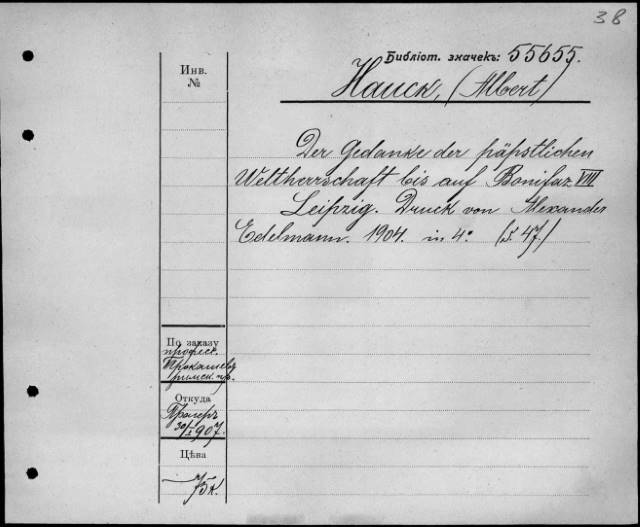 38
Библіот. значекъ: 55655.
Инв.
№
Hauck, (Albert)
Der Gedanke der päpstlichen
Weltherrschaft bis auf Bonifaz VIII
Leipzig. Druck von Alexander
Edelmann. 1904. in 4° (S. 47.)
По заказу
професс.
римск. пр.
Откуда
30/X 1907.
Цѣна
75 к.